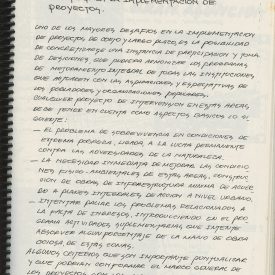 IMPLEMENTACION DE
PROYECTOS.
UNO DE LOS MAYORES DESAFIOS EN LA IMPLEMENTACION
DE PROYECTOS DE CORTO Y LARGO PLAZO ES LA POSIBILIDAD
DE CONCRETIZAR UNA INSTANCIA DE PARTICIPACION Y TOMA
DE DECISIONES QUE PUEDA ARMONIZAR LOS PROGRAMAS
DE MEJORAMIENTO INTEGRAL DE TODAS LAS INSTITUCIONES
QUE LABOREN CON LAS ASPIRACIONES Y ESPECTATIVAS DE
LOS POBLADORES Y ORGANIZACIONES POPULARES.
CUALQUIER PROYECTO DE INTERVENCION EN ESTAS AREAS,
DEBE TENER EN CUENTA COMO ASPECTOS BASICOS LO SI-
GUIENTE:
— EL PROBLEMA DE SOBREVIVENCIA EN CONDICIONES DE
EXTREMA POBREZA, LIGADA A LA LUCHA PERMANENTE
CONTRA LAS ADVERSIDADES DE LA NATURALEZA.
— LA NECESIDAD INMEDIATA DE MEJORAR LAS CONDICIO-
NES FISICO-AMBIENTALES DE ESTAS AREAS, CONSTRUC-
CION DE OBRAS DE INFRAESTRUCTURA MINIMA DE ACUER-
DO A PLANES INTEGRALES DE ACCION A NIVEL URBANO.
— INTENTAR PALIAR LOS PROBLEMAS RELACIONADOS A
LA FALTA DE INGRESOS, INTRODUCIENDO EN EL PRO-
GRAMA ACTIVIDADES SUPLEMENTARIAS QUE INTENTE
ABSORVER ALGUN PORCENTAJE DE LA MANO DE OBRA
OCIOSA DE ESTAS ZONAS.
ALGUNOS CRITERIOS QUE SON IMPORTANTE PUNTUALIZAR
Y QUE PODRIAN CONFORMAR EL MARCO GENERAL DE
LOS PROYECTOS